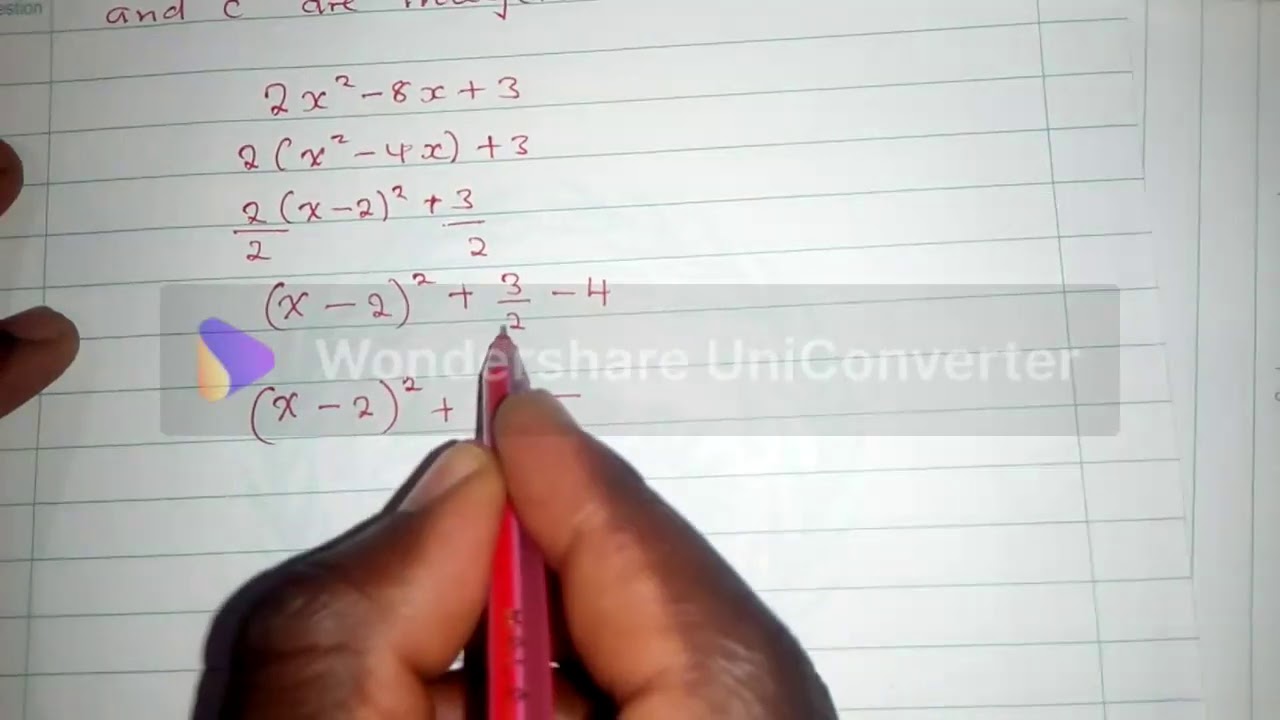 estion
and c are
2x² - 8x + 3
2(x² - 4x) + 3
2/2 (x - 2)² + 3/2
(x - 2)² + 3/2 - 4
Wondershare UniConverter
(x - 2)² +